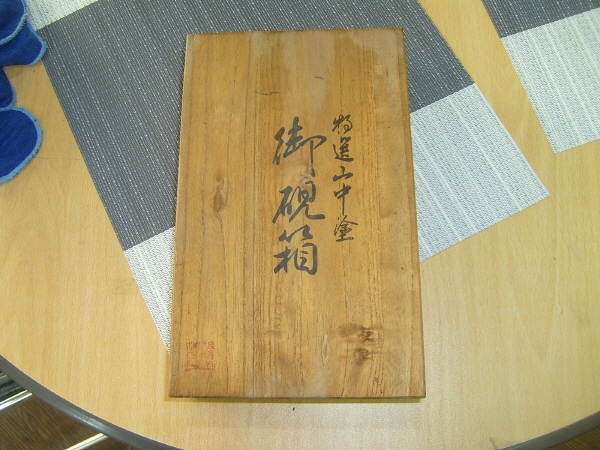 特選山中塗
御硯箱